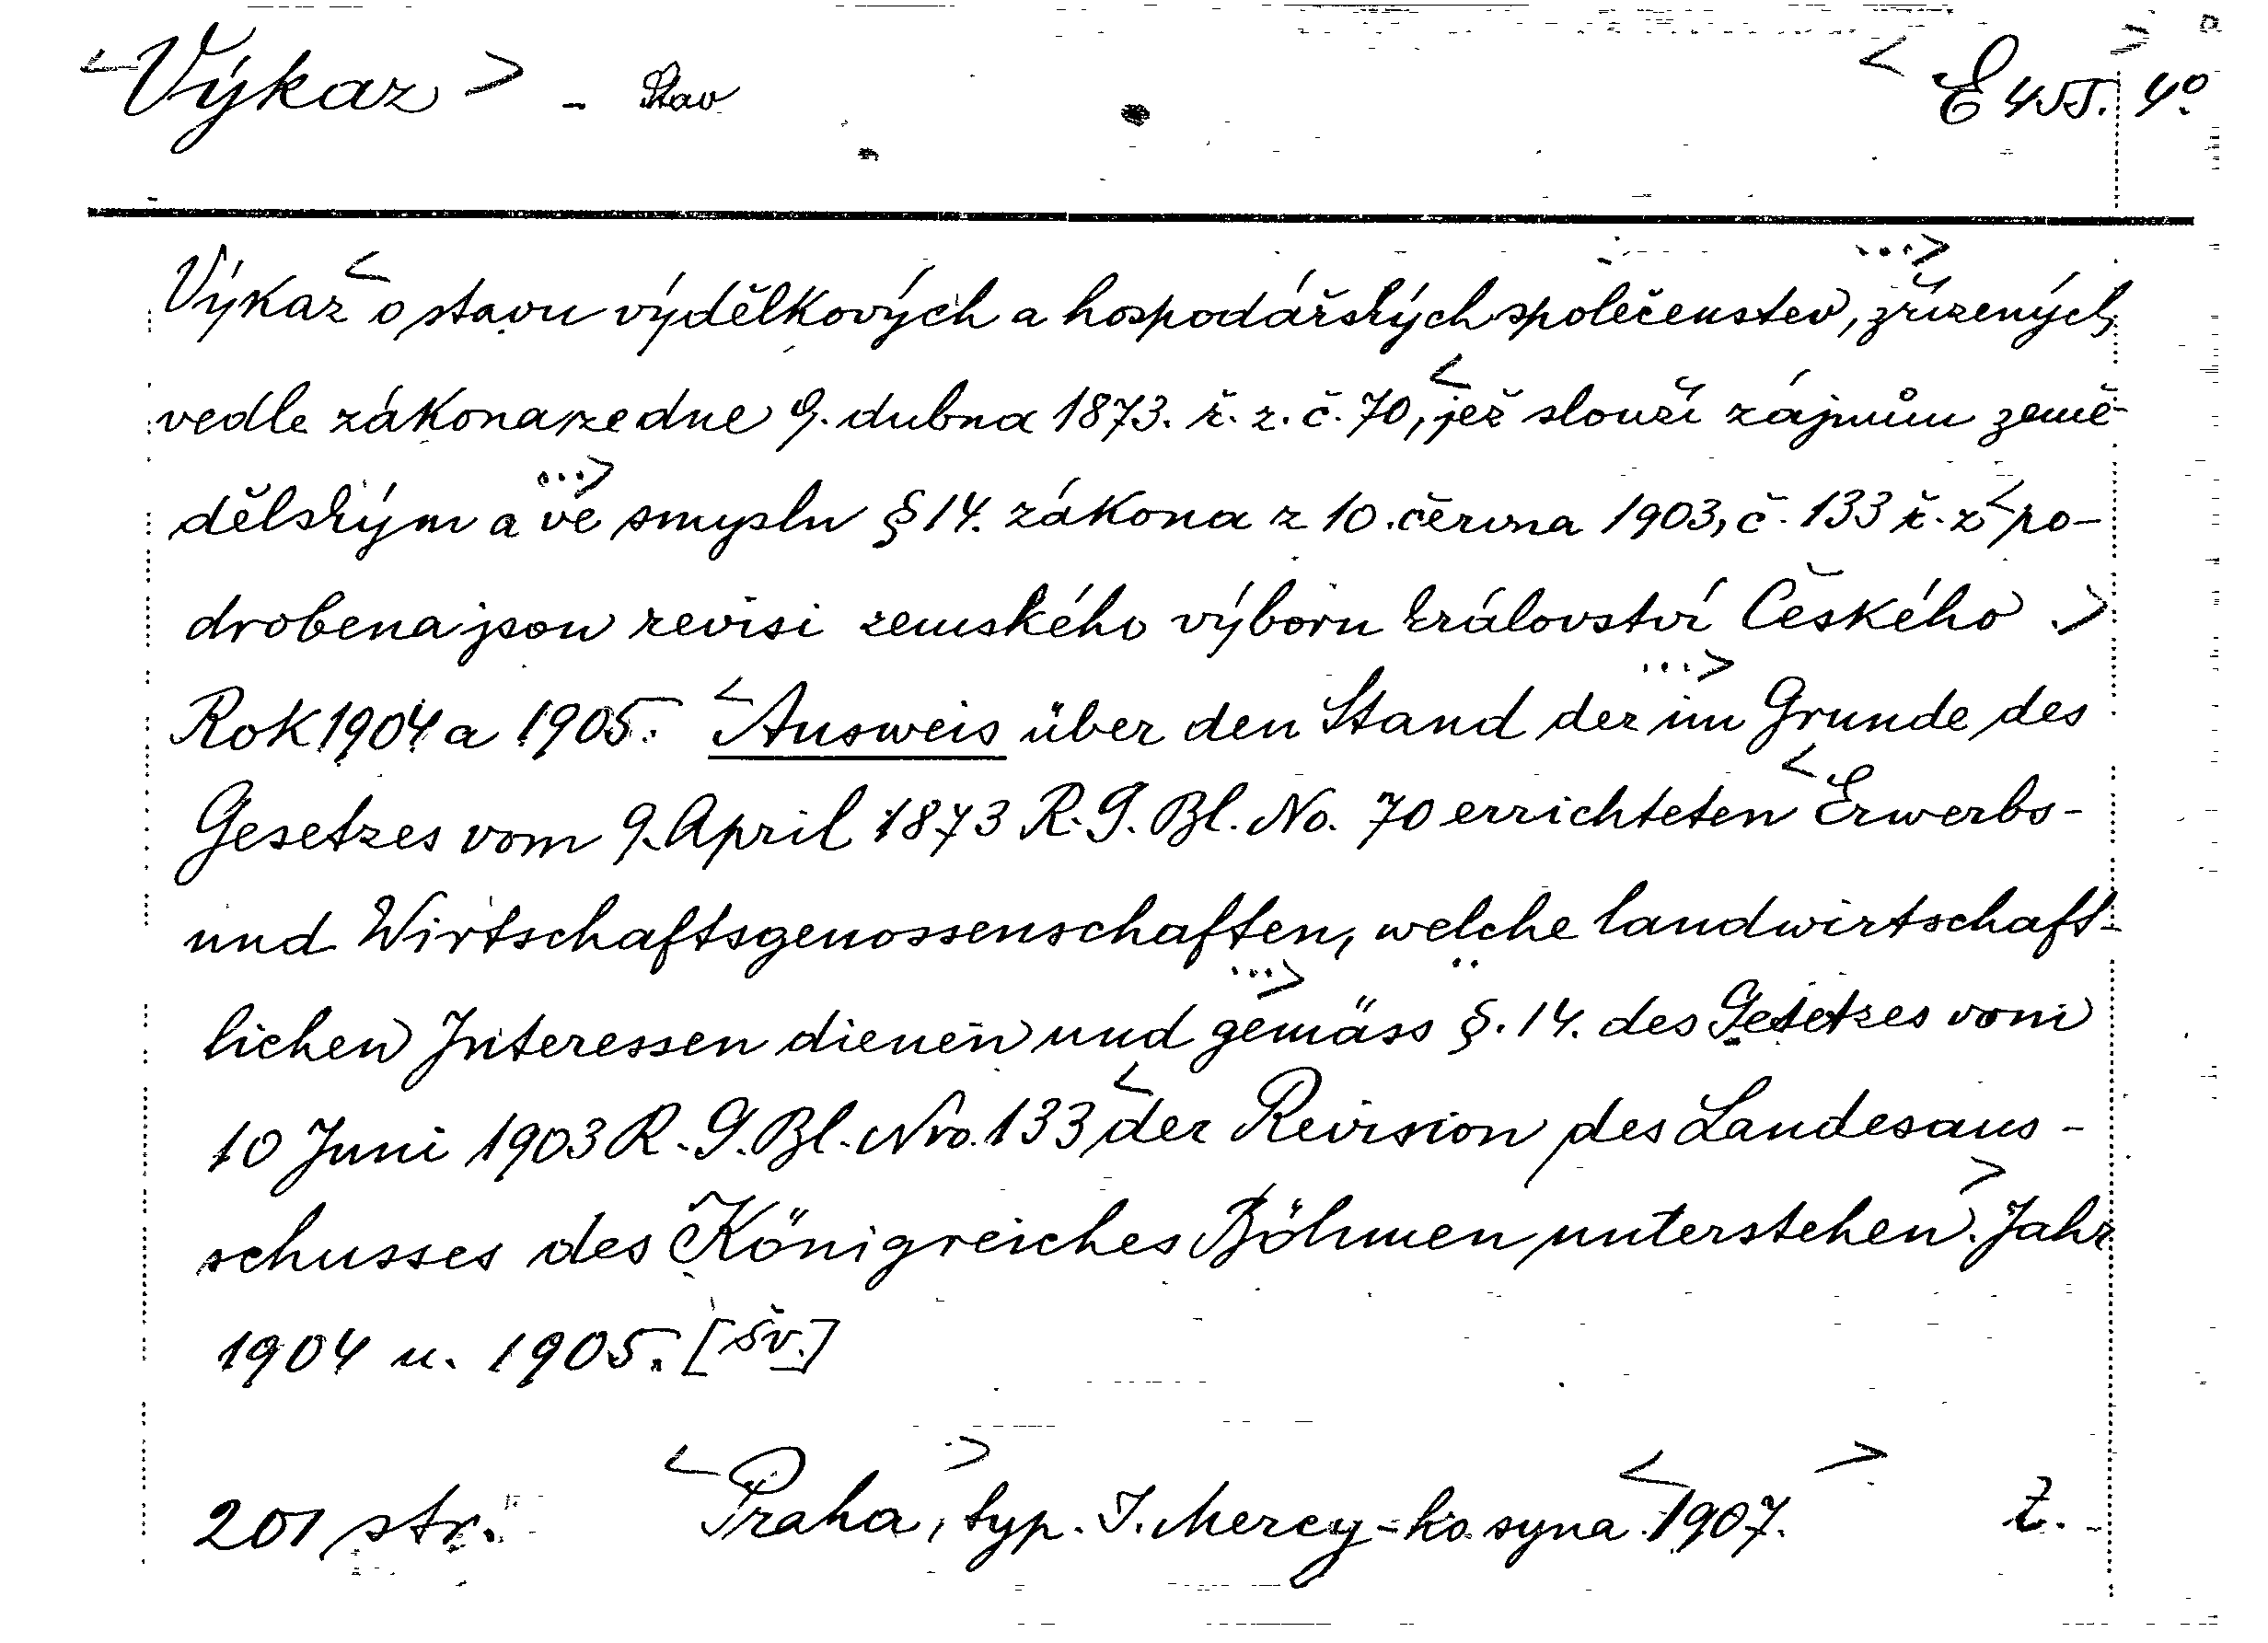 <Výkaz> - Stav <E 455. 4º>
Výkaz <o stavu výdělkových a hospodářských společenstev, ...> zřízených
vedle zákona ze dne 9. dubna 1873. ř. z. č. 70, <jež slouží zájmům země-
dělským a ...> ve smyslu § 14. zákona z 10. června 1903, č. 133 ř. z. <po-
drobena jsou revisi zemského výboru království Českého.>
Rok 1904 a 1905. <Ausweis über den Stand der ...> im Grunde des
Gesetzes vom 9. April 1873 R. G. Bl. No. 70 errichteten <Erwerbs-
und Wirtschaftsgenossenschaften, welche landwirtschaft-
lichen Interessen dienen und ...> gemäss §. 14. des Gesetzes vom
10 Juni 1903 R. G. Bl. Nro. 133 <der Revision des Landesaus-
schusses des Königreiches Böhmen unterstehen.> Jahr
1904 u. 1905. [šv.]
201 str. <Praha,> typ. J. Mercy-ho syna <1907.> Ž.